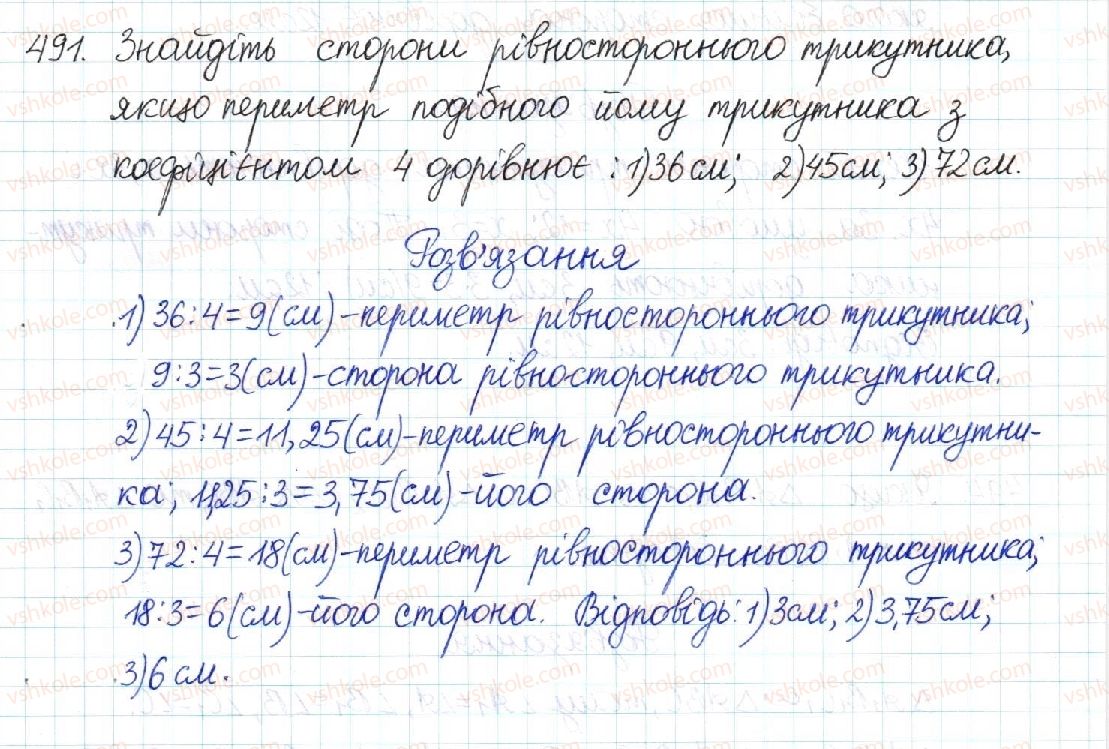 491. Знайдіть сторони рівностороннього трикутника,
якщо периметр подібного йому трикутника з
коефіцієнтом 4 дорівнює : 1) 36 см; 2) 45 см; 3) 72 см.
Розв'язання
1) 36 : 4 = 9 (см) - периметр рівностороннього трикутника;
9 : 3 = 3 (см) - сторона рівностороннього трикутника.
2) 45 : 4 = 11,25 (см) - периметр рівностороннього трикутни-
ка; 11,25 : 3 = 3,75 (см) - його сторона.
3) 72 : 4 = 18 (см) - периметр рівностороннього трикутника;
18 : 3 = 6 (см) - його сторона. Відповідь: 1) 3 см; 2) 3,75 см;
3) 6 см.